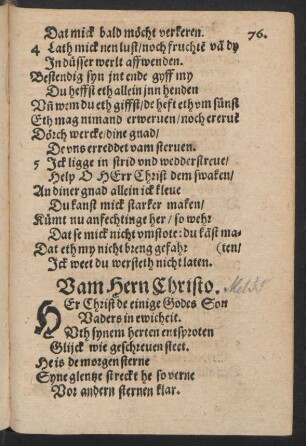 Dat mick bald möcht verkeren. 76.
4 Lath mick nen lust/noch fruchtē vā dy
In düsser werlt affwenden.
Bestendig syn jnt ende gyff my
Du heffst eth allein jnn henden
Vñ wem du eth giffst/de heft eth vm sünst
Eth mag nimand erweruen/noch erervē
Dörch wercke/dine gnad/
De vns erreddet vam steruen.
5 Jck ligge in strid vnd wedderstreue/
Help O HErr Christ dem swaken/
An diner gnad allein ick kleue
Du kanst mick starker maken/
Kümt nu anfechtinge her/so wehr
Dat se mick nicht vmstote: du kāst ma-
Dat eth my nicht breng gefahr (ten/
Jck weet du wersteth nicht laten.
Vam Hern Christo.
HEr Christ de einige Godes Son
Vaders in ewicheit.
Vth synem herten entsproten
Glijck wie geschreuen steet.
He is de morgensterne
Syne glentze streckt he so verne
Vor andern sternen klar.